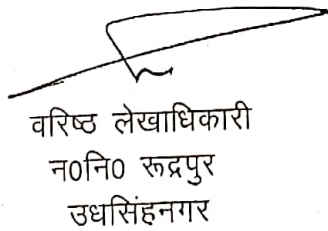 वरिष्ठ लेखाधिकारी
न0नि0 रूद्रपुर
उधसिंहनगर